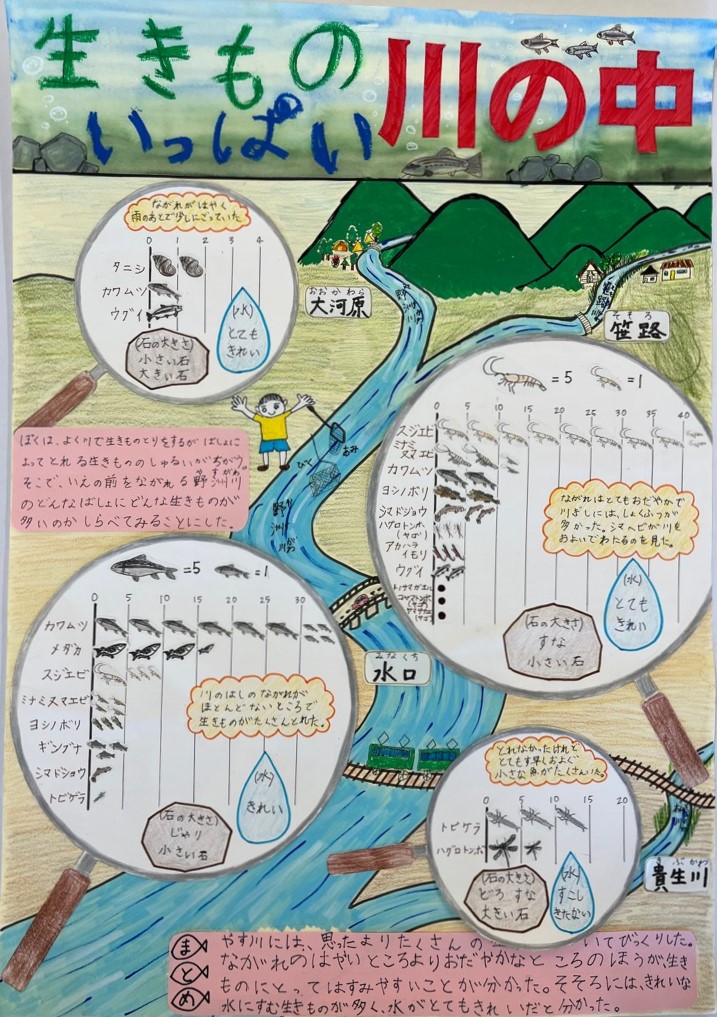 生きもの
いっぱい
川の中
ながれがはやく
雨のあとで少しにごっていた
0 1 2 3 4
タニシ
カワムツ
ウグイ
(石の大きさ)
小さい石
大きい石
(水)
とても
きれい
おおかわら
大河原
そそろ
笹路
ぼくは、よく川で生きものとりをするがばしょに
よってとれる生きもののしゅるいがちがう。
そこで、いえの前をながれる野洲川
のどんなばしょにどんな生きものが
多いのかしらべてみることにした。
あみ
ひく
=5 =1
0 5 10 15 20 25 30 35 40
スジエビ
ミナミ
ヌマエビ
カワムツ
ヨシノボリ
シマドジョウ
ハグロトンボ
(ヤゴ)
アカハラ
イモリ
ウグイ
ながれはとてもおだやかで
川ぎしには、しょくぶつが
多かった。シマヘビが川を
およいでわたるのを見た。
(石の大きさ)
すな
小さい石
(水)
とても
きれい
=5 =1
0 5 10 15 20 25 30
カワムツ
メダカ
スジエビ
ミナミヌマエビ
ヨシノボリ
ギンブナ
シマドジョウ
トビゲラ
川のはしのながれが
ほとんどないところで
生きものがたくさんとれた。
(石の大きさ)
じゃり
小さい石
(水)
きれい
みなくち
水口
とれなかったけれど
とても早くおよぐ
小さな魚がたくさんいた。
0 5 10 15 20
トビゲラ
ハグロトンボ
(石の大きさ)
どろ すな
大きい石
(水)
すこし
きたない
きぶかわ
貴生川
まとめ
やす川には、思ったよりたくさんの生 いてびっくりした。
ながれのはやいところよりおだやかなところのほうが、生き
ものにとってはすみやすいことが分かった。そそろには、きれいな
水にすむ生きものが多く、水がとてもきれいだと分かった。